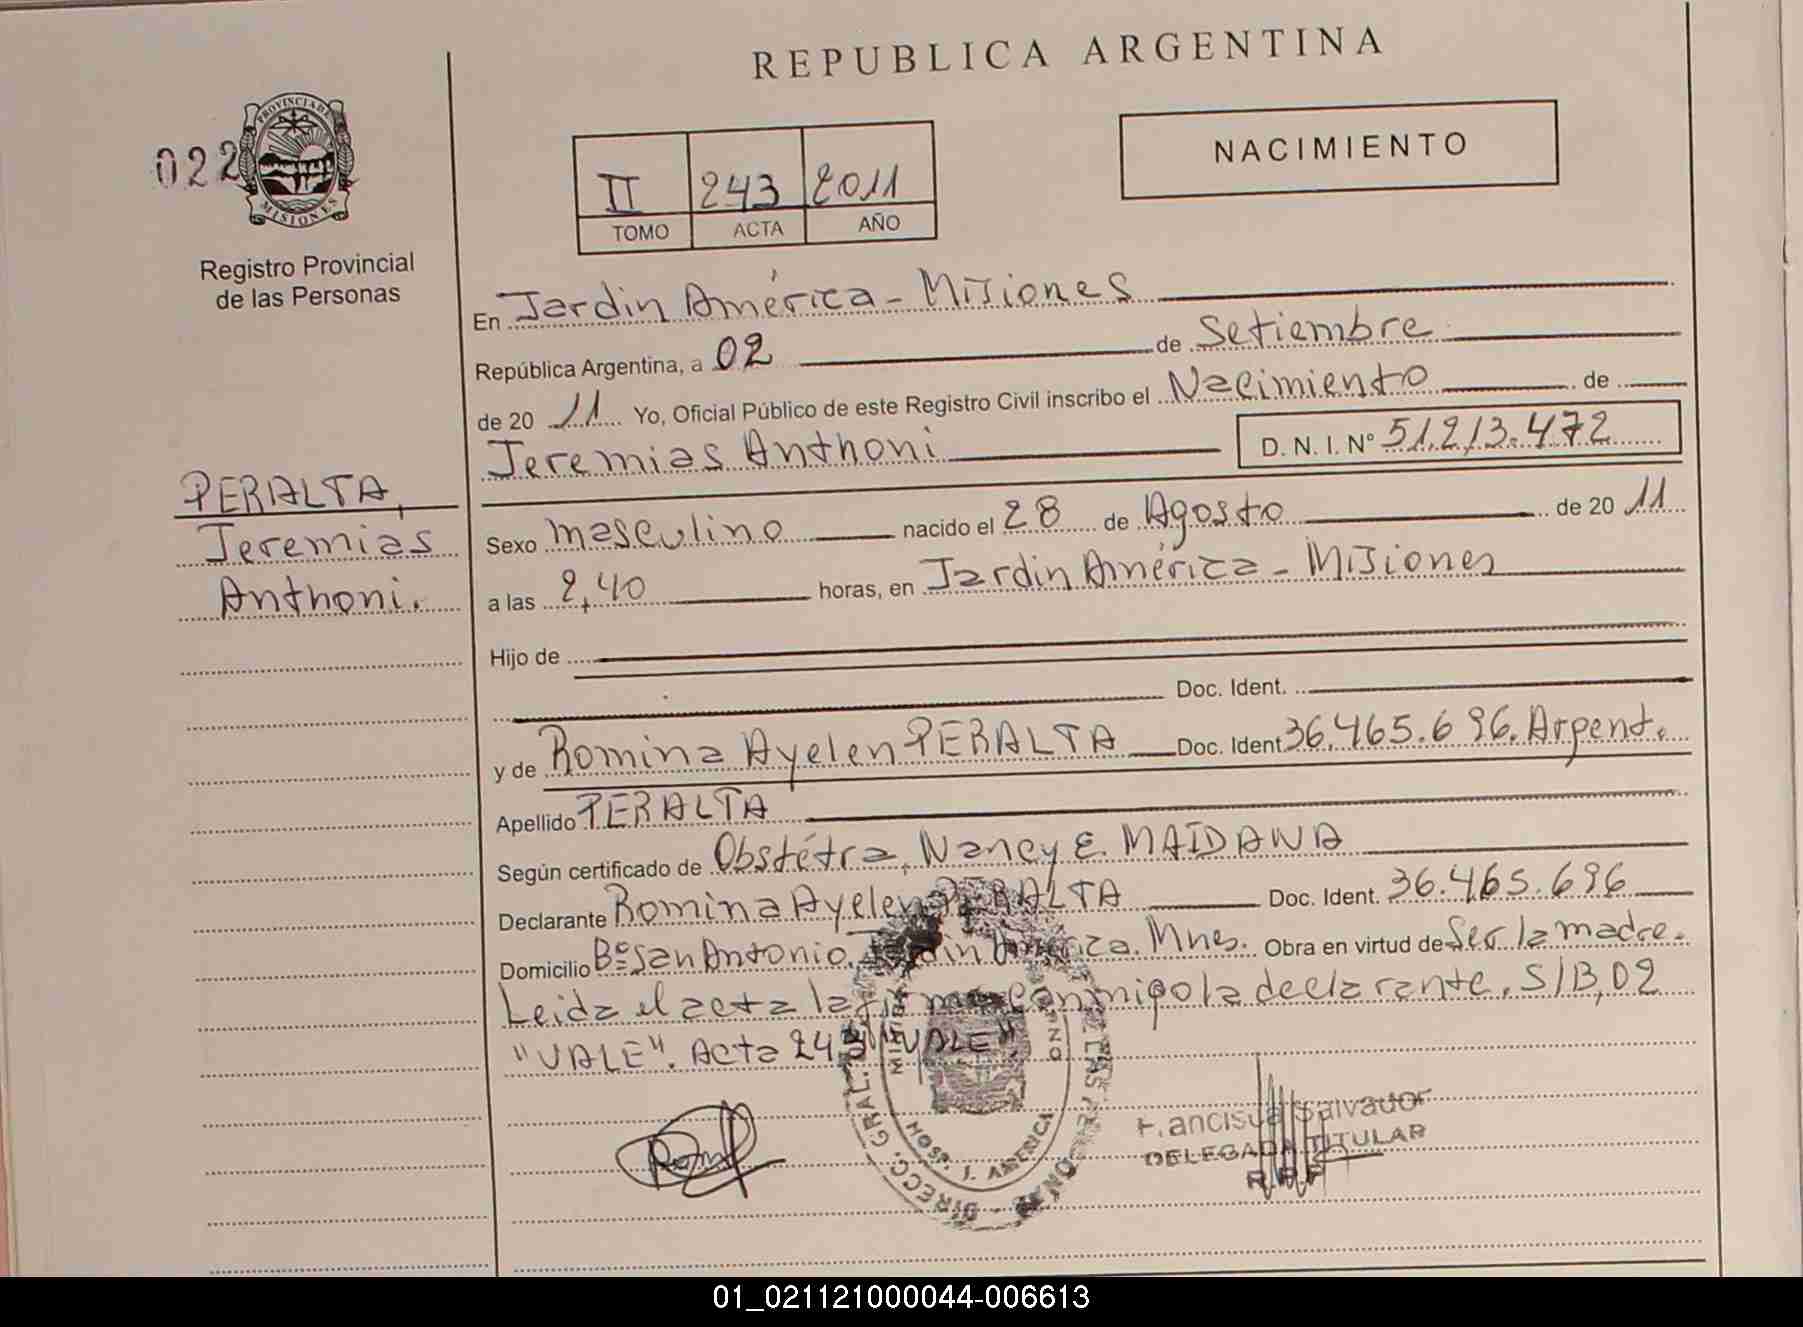 REPUBLICA ARGENTINA
022
PROVINCIA DE
MISIONES
Registro Provincial
de las Personas
II 243 2011
TOMO ACTA AÑO
NACIMIENTO
PERALTA,
Jeremias
Anthoni.
En Jardin América - Misiones
República Argentina, a 02 de Setiembre
de 20 11 Yo, Oficial Público de este Registro Civil inscribo el Nacimiento de
Jeremias Anthoni D. N. I. Nº 51.213.472
Sexo masculino nacido el 28 de Agosto de 20 11
a las 2,40 horas, en Jardin América - Misiones
Hijo de
Doc. Ident.
y de Romina Ayelen PERALTA Doc. Ident 36.465.696. Argent.
Apellido PERALTA
Según certificado de Obstétra, Nancy E. MAIDANA
Declarante Romina Ayelen PERALTA Doc. Ident. 36.465.696
Domicilio Bº San Antonio. Jardin América. Mnes. Obra en virtud de Ser la madre.
Leida el acta la firma conmigo la declarante. S/B, 02
"VALE". Acta 243 "VALE".
DIRECC. GRAL. DE LAS
HOSP. J. AMERICA
Francisca Salvador
DELEGADA TITULAR
R.P.P
01_021121000044-006613